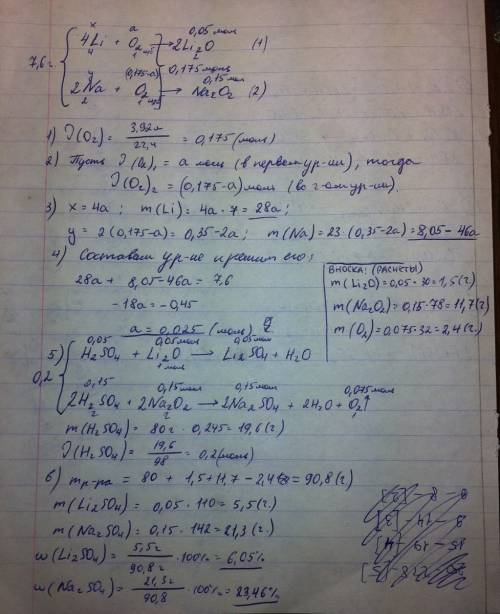 x a 0,05 моль
4Li + O2 изб → 2Li2O (1)
4 1 2
7,6 г 0,175 моль
y (0,175-a) 0,15 моль
2Na + O2 изб → Na2O2 (2)
2 1
1) ν(O2) = 3,92 л / 22,4 = 0,175 (моль)
2) Пусть ν(O2)1 = a моль (в первом ур-ии), тогда
ν(O2)2 = (0,175-a) моль (во 2-ом ур-ии).
3) x = 4a; m(Li) = 4a · 7 = 28a;
y = 2(0,175-a) = 0,35-2a; m(Na) = 23·(0,35-2a) = 8,05-46a
4) Составим ур-ие и решим его:
28a + 8,05-46a = 7,6
-18a = -0,45
a = 0,025 (моль)
ВНОСКА: (РАСЧЁТЫ)
m(Li2O) = 0,05·30 = 1,5 (г.)
m(Na2O2) = 0,15·78 = 11,7 (г.)
m(O2) = 0,075·32 = 2,4 (г.)
0,05 0,05 моль 0,05 моль
5) H2SO4 + Li2O → Li2SO4 + H2O
1 моль
0,2
0,15 0,15 моль 0,15 моль 0,075 моль
2H2SO4 + 2Na2O2 → 2Na2SO4 + 2H2O + O2↑
2 2 1
m(H2SO4) = 80 г · 0,245 = 19,6 (г.)
ν(H2SO4) = 19,6 / 98 = 0,2 (моль)
6) m р-ра = 80 + 1,5 + 11,7 - 2,4 = 90,8 (г)
m(Li2SO4) = 0,05 · 110 = 5,5 (г.)
m(Na2SO4) = 0,15 · 142 = 21,3 (г.)
ω(Li2SO4) = 5,5 г / 90,8 г · 100% = 6,05%
ω(Na2SO4) = 21,3 г / 90,8 · 100% = 23,46%